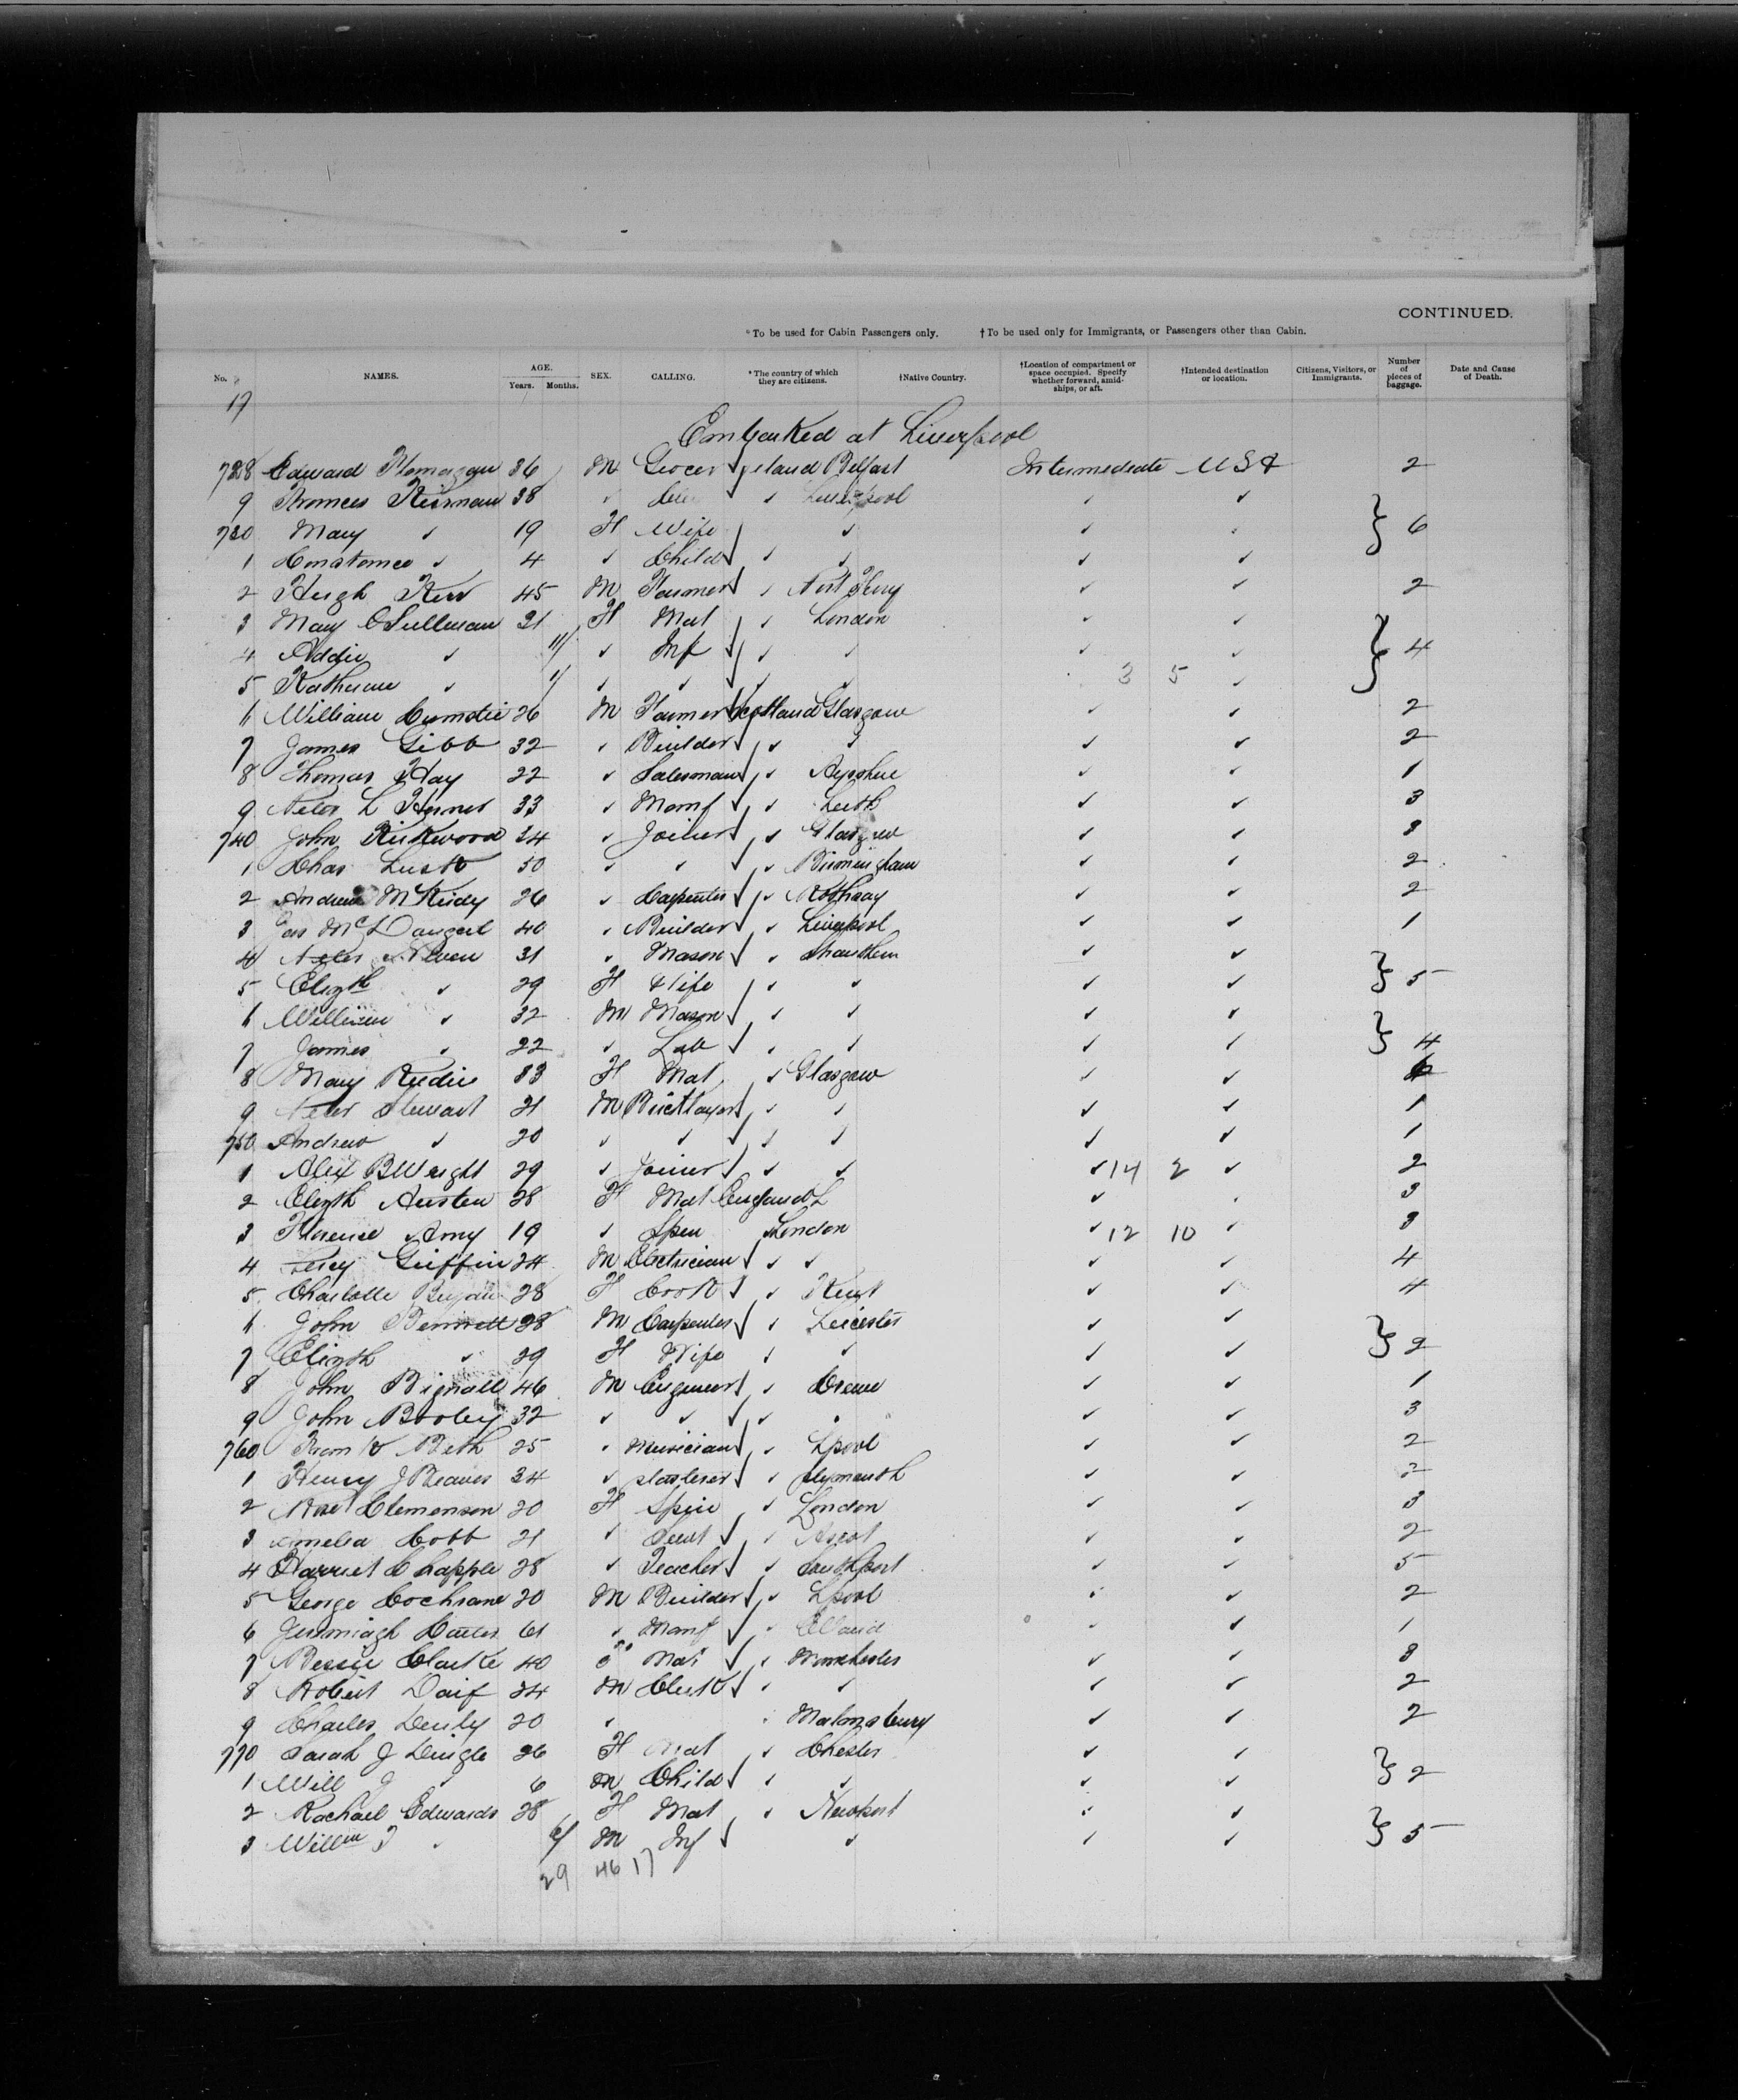 CONTINUED.
*To be used for Cabin Passengers only. †To be used only for Immigrants, or Passengers other than Cabin.
No. NAMES. AGE. Years. Months. SEX. CALLING. *The country of which they are citizens. †Native Country. †Location of compartment or space occupied. Specify whether forward, amidships, or aft. †Intended destination or location. Citizens, Visitors, or Immigrants. Number of pieces of baggage. Date and Cause of Death.
17
Embarked at Liverpool
728 Edward 36 M Grocer Ireland Belfast Intermediate USA 2
9 38 ✓ ✓ Liverpool ✓ ✓
730 Mary ✓ 19 F Wife ✓ ✓ } 6
1 Constance ✓ 4 ✓ Child ✓ ✓ ✓ ✓
2 Hugh Kerr 45 M Farmer ✓ ✓ ✓ 2
3 Mary O'Sullivan 21 F Mat ✓ London ✓ ✓
4 Addie ✓ 11/ ✓ Inf ✓ ✓ ✓ ✓ } 4
5 Katherine ✓ 11/ ✓ ✓ ✓ ✓ 3 5 ✓
6 William 26 M Farmer Scotland Glasgow ✓ ✓ 2
7 James Gibb 32 ✓ Builder ✓ ✓ ✓ ✓ 2
8 Thomas Hay 22 ✓ Salesman ✓ Ayrshire ✓ ✓ 1
9 Peter L 33 ✓ Manf ✓ Leith ✓ ✓ 3
740 John Kirkwood 24 ✓ Joiner ✓ Glasgow ✓ ✓ 3
1 Chas Lusk 50 ✓ ✓ ✓ Birmingham ✓ ✓ 2
2 Andrew 26 ✓ Carpenter ✓ Rothsay ✓ ✓ 2
3 Jas McDougal 40 ✓ Builder ✓ Liverpool ✓ ✓ 1
4 Peter Niven 31 ✓ Mason ✓ ✓ ✓
5 Elizth ✓ 29 F Wife ✓ ✓ ✓ ✓ } 5
6 William ✓ 32 M Mason ✓ ✓ ✓ ✓
7 James ✓ 22 ✓ Lab ✓ ✓ ✓ ✓ } 4
8 Mary 33 F Mat ✓ Glasgow ✓ ✓
9 Peter Stewart 21 M Bricklayer ✓ ✓ ✓ ✓ 1
750 Andrew ✓ 20 ✓ ✓ ✓ ✓ ✓ ✓ 1
1 Alex B Wright 29 ✓ Joiner ✓ ✓ ✓ 14 2 ✓ 2
2 Elizth Austen 28 F Mat England ✓ 3
3 Florence Amy 19 ✓ Spin London ✓ 12 10 ✓ 3
4 Percy Griffin 24 M Electrician ✓ ✓ ✓ ✓ 4
5 Charlotte 28 F Cook ✓ Kent ✓ ✓ 4
6 John Bennett 28 M Carpenter ✓ Leicester ✓ ✓
7 Elizth ✓ 29 F Wife ✓ ✓ ✓ ✓ } 2
8 John Bignall 46 M Engineer ✓ Crewe ✓ ✓ 1
9 John Booley 32 ✓ ✓ ✓ ✓ ✓ 3
760 Frank Beth 25 ✓ Musician ✓ Lpool ✓ ✓ 2
1 Henry J Beaver 34 ✓ plasterer ✓ plymouth ✓ ✓ 2
2 Rose Clemenson 20 F Spin ✓ London ✓ ✓ 3
3 Amelia Cobb 21 ✓ Servt ✓ Ascot ✓ ✓ 2
4 Harriet Chapple 28 ✓ Teacher ✓ Southport ✓ ✓ 5
5 George Cochrane 20 M Builder ✓ Lpool ✓ ✓ 2
6 Jeremiagh 61 ✓ Manf ✓ Elland ✓ ✓ 1
7 Bessie Clarke 40 F Mat ✓ Manchester ✓ ✓ 3
8 Robert 24 M Clerk ✓ ✓ ✓ ✓ 2
9 Charles 20 ✓ Malmsbury ✓ ✓ 2
770 Sarah J Dingle 26 F Mat ✓ Chester ✓ ✓
1 Will J ✓ 6 M Child ✓ ✓ ✓ ✓ } 2
2 Rachael Edwards 28 F Mat ✓ Newport ✓ ✓
3 Willm J ✓ 6/ M Inf ✓ ✓ ✓ } 5
29 46 17